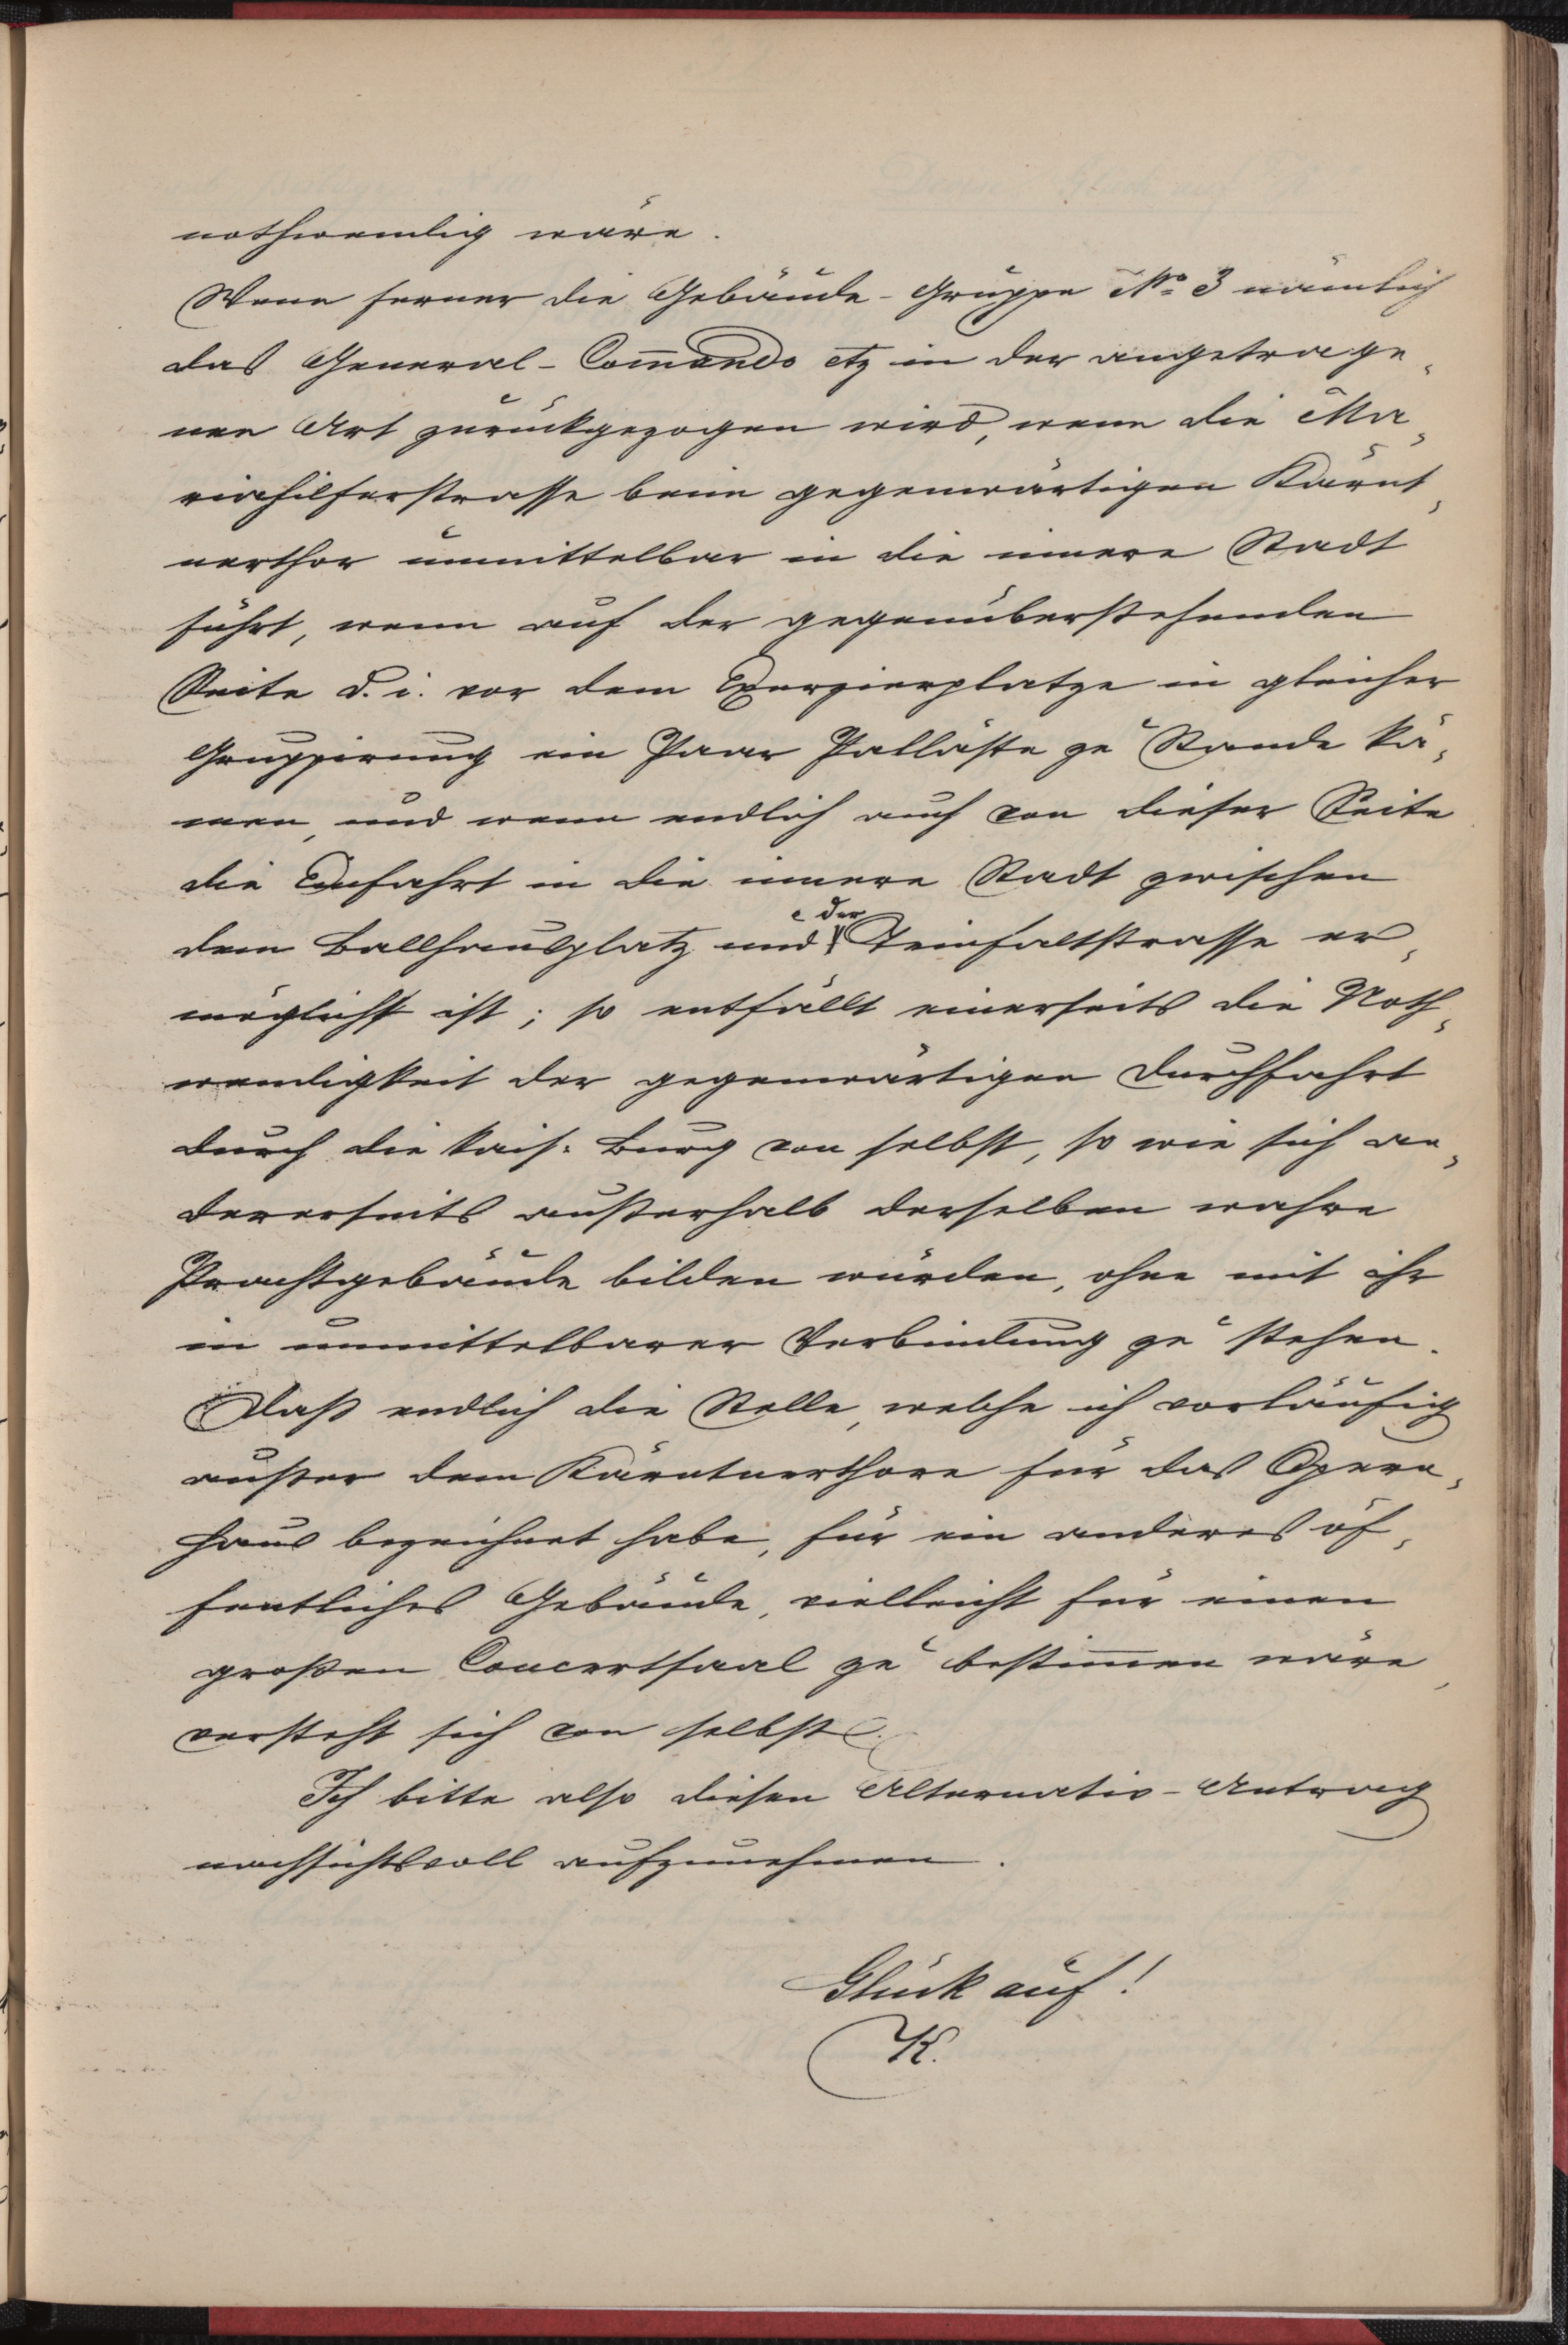 nothwendig wäre.
Wenn ferner die Gebäude-Gruppe No 3 nämlich
das General-Com̅ando etz in der angetrage-
nen Art zurückgezogen wird, wenn die Ma-
riahilferstrasse beim gegenwärtigen Kärnt-
nerthor unmittelbar in die innere Stadt
führt, wenn auf der gegenüberstehenden
Seite d. i. vor dem Exerzierplatze in gleicher
Gruppirung ein Paar Palläste zu Stande kä-
men, und wenn endlich auch von dieser Seite
die Einfahrt in die innere Stadt zwischen
dem Ballhausplatz und der Teinfaltstrasse er-
möglicht ist; so entfällt einerseits die Noth-
wendigkeit der gegenwärtigen Durchfahrt
durch die kais: Burg von selbst, so wie sich an-
dererseits außerhalb derselben wahre
Prachtgebäude bilden würden, ohne mit ihr
in unmittelbarer Verbindung zu stehen.
Daß endlich die Stelle, welche ich vorläufig
außer dem Kärntnerthore für das Opern-
haus bezeichnet habe, für ein anderes öf-
fentliches Gebäude, vielleicht für einen
großen Concertsaal zu bestim̅en wäre,
versteht sich von selbst.
Ich bitte also diesen Alternativ-Antrag
nachsichtsvoll aufzunehmen.
Glück auf!
K.